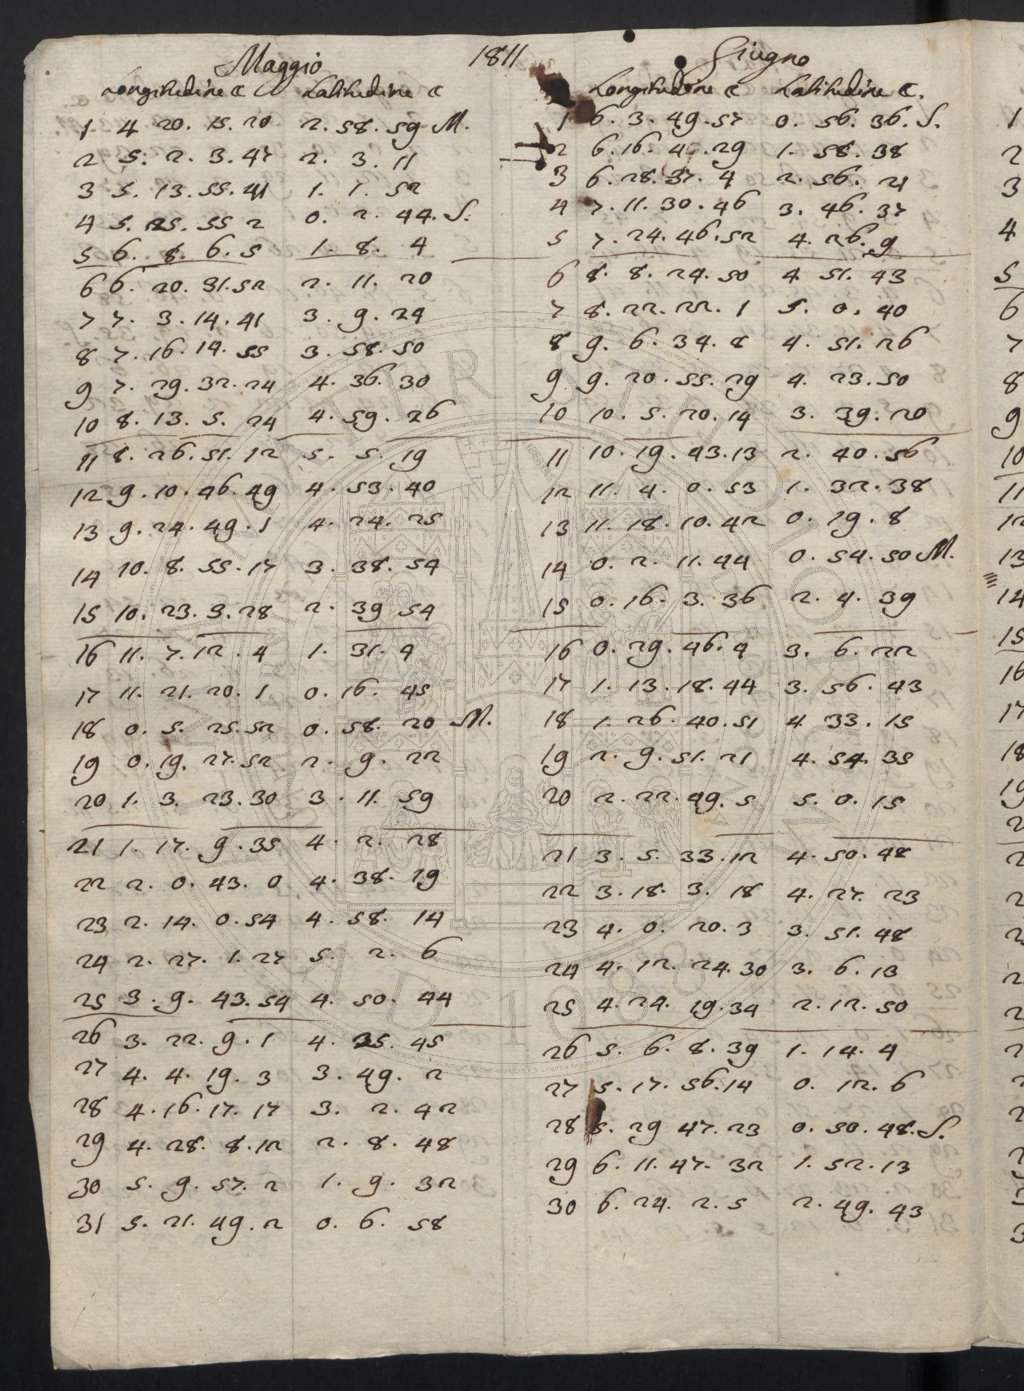 1811
Maggio
Longitudine ☾ Latitudine ☾
1 4 20. 15. 20 2. 58. 59 M.
2 5. 2. 3. 47 2. 3. 11
3 5. 13. 55. 41 1. 1. 52
4 5. 25. 55. 2 0. 2. 44. S.
5 6. 8. 6. 5 1. 8. 4
6 6. 20. 31. 52 2. 11. 20
7 7. 3. 14. 41 3. 9. 24
8 7. 16. 14. 55 3. 58. 50
9 7. 29. 32. 24 4. 36. 30
10 8. 13. 5. 24 4. 59. 26
11 8. 26. 51. 12 5. 5. 19
12 9. 10. 46. 49 4. 53. 40
13 9. 24. 49. 1 4. 24. 25
14 10. 8. 55. 17 3. 38. 54
15 10. 23. 3. 28 2. 39 54
16 11. 7. 12. 4 1. 31. 4
17 11. 21. 20. 1 0. 16. 45
18 0. 5. 25. 52 0. 58. 20 M.
19 0. 19. 27. 52 2. 9. 22
20 1. 3. 23. 30 3. 11. 59
21 1. 17. 9. 35 4. 2. 28
22 2. 0. 43. 0 4. 38. 19
23 2. 14. 0. 54 4. 58. 14
24 2. 27. 1. 27 5. 2. 6
25 3. 9. 43. 54 4. 50. 44
26 3. 22. 9. 1 4. 25. 45
27 4. 4. 19. 3 3. 49. 2
28 4. 16. 17. 17 3. 2. 42
29 4. 28. 8. 12 2. 8. 48
30 5. 9. 57. 2 1. 9. 32
31 5. 21. 49. 2 0. 6. 58
Giugno
Longitudine ☾ Latitudine ☾.
1 6. 3. 49. 57 0. 56. 36. S.
2 6. 16. 4. 29 1. 58. 38
3 6. 28. 37. 4 2. 56. 21
4 7. 11. 30. 46 3. 46. 37
5 7. 24. 46. 52 4. 26. 9
6 8. 8. 24. 50 4 51. 43
7 8. 22. 22. 1 5. 0. 40
8 9. 6. 34. 8 4. 51. 26
9 9. 20. 55. 29 4. 23. 50
10 10. 5. 20. 14 3. 39. 20
11 10. 19. 43. 13 2. 40. 56
12 11. 4. 0. 53 1. 32. 38
13 11. 18. 10. 42 0. 19. 8
14 0. 2. 11. 44 0. 54. 50 M.
15 0. 16. 3. 36 2. 4. 39
16 0. 29. 46. 4 3. 6. 22
17 1. 13. 18. 44 3. 56. 43
18 1. 26. 40. 51 4 33. 15
19 2. 9. 51. 21 4. 54. 35
20 2. 22. 49. 5 5. 0. 15
21 3. 5. 33. 12 4. 50. 48
22 3. 18. 3. 18 4. 27. 23
23 4. 0. 20. 3 3. 51. 48
24 4. 12. 24. 30 3. 6. 13
25 4. 24. 19. 34 2. 12. 50
26 5. 6. 8. 39 1. 14. 4
27 5. 17. 56. 14 0. 12. 6
28 5. 29 47. 23 0. 50. 48. S.
29 6. 11. 47. 32 1. 52. 13
30 6. 24. 2. 5 2. 49. 43
1
2
3
4
5
6
7
8
9
10
11
12
13
14
15
16
17
18
19